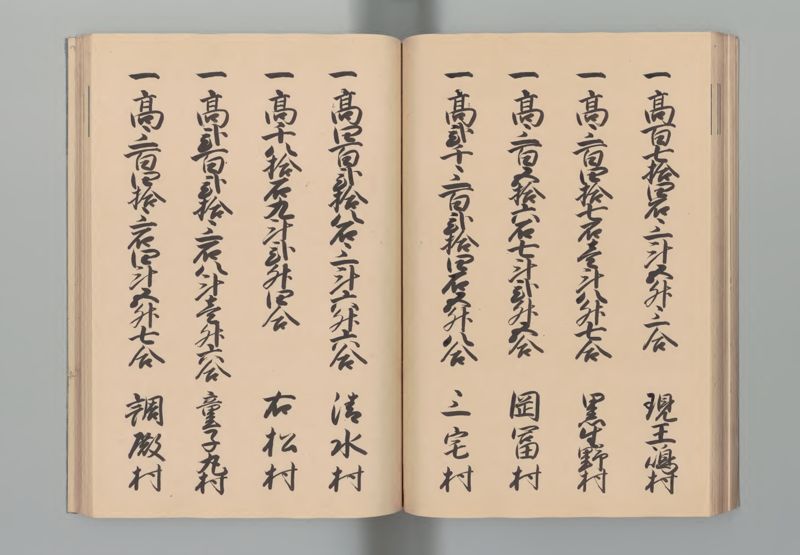 一高百七拾四石三斗五升三合 現王嶋村
一高三百四拾七石壱斗八升七合 黒生野村
一高三百五拾六石七斗弐升五合 岡冨村
一高弐千三百弐拾四石五升八合 三宅村
一高四百弐拾八石三斗六升六合 清水村
一高千八拾石九斗弐升四合 右松村
一高弐百弐拾三石八斗壱升六合 童子丸村
一高三百四拾三石四斗五升七合 調殿村